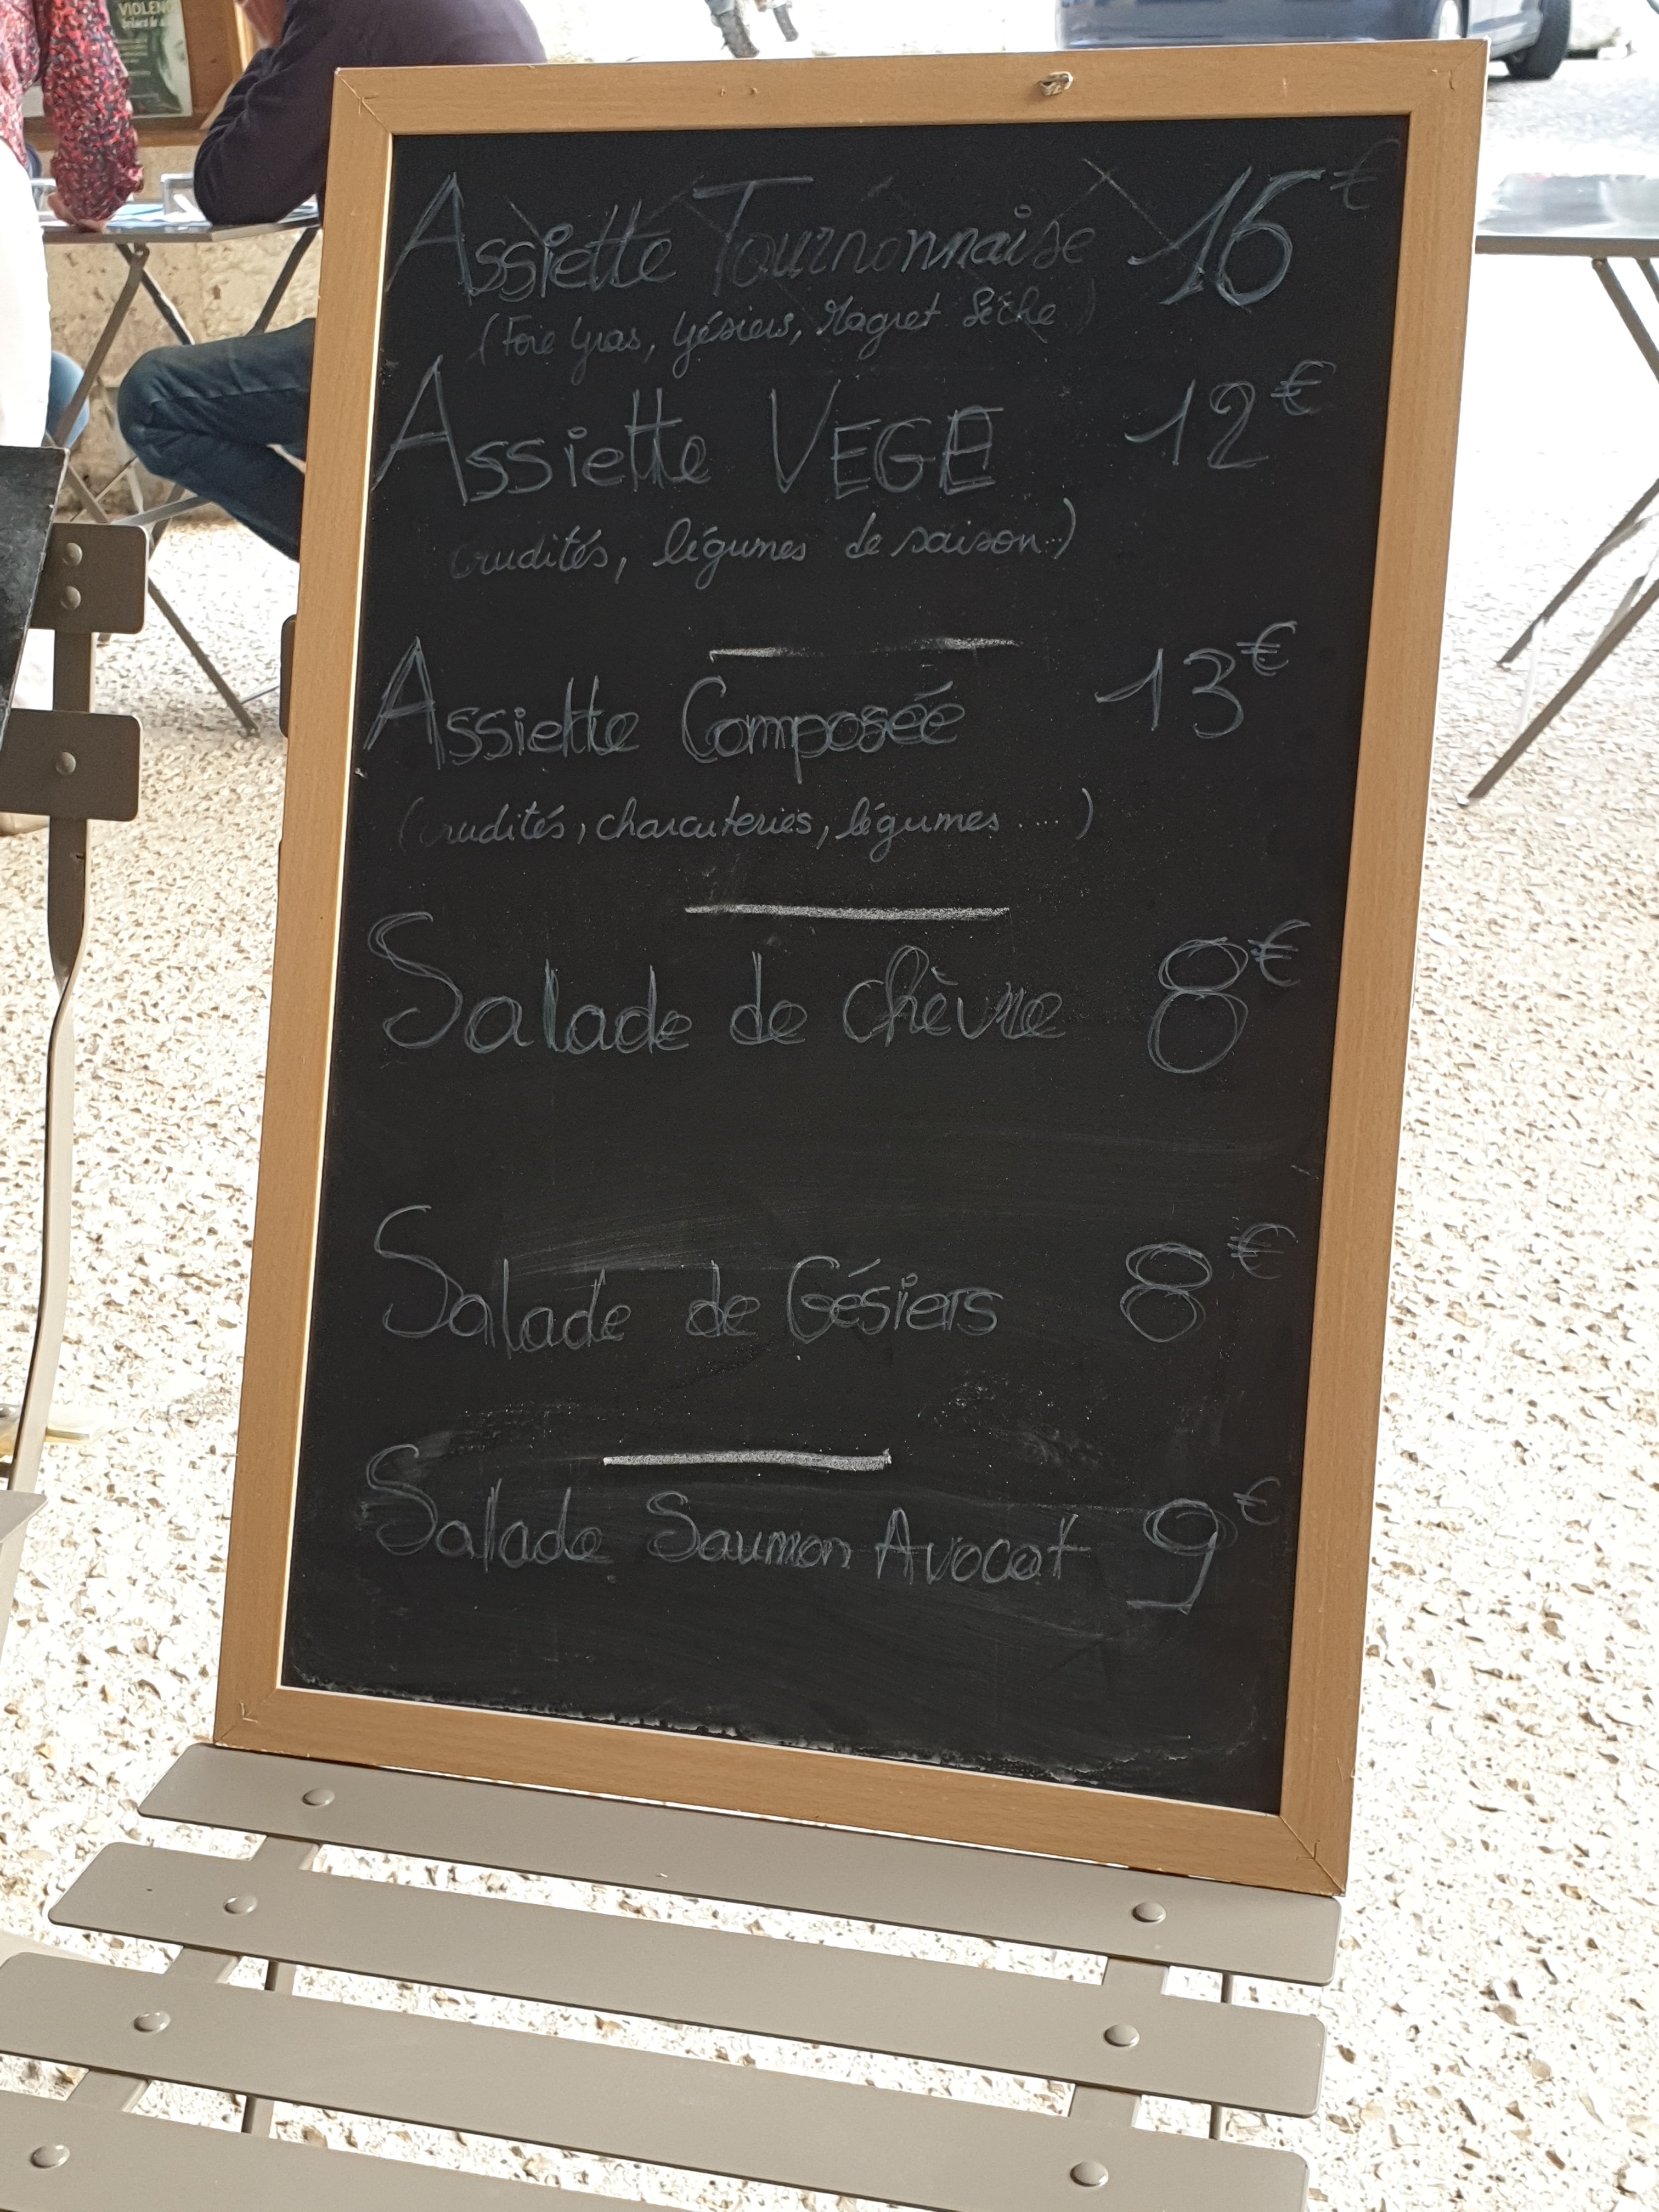 VIOLENC
Assiette Tournonnaise 16€
(Foie Gras, Gésiers, Magret Séché)
Assiette VEGE 12€
crudités, légumes de saison..)
Assiette Composée 13€
(crudités, charcuteries, légumes ....)
Salade de chèvre 8€
Salade de Gésiers 8€
Salade Saumon Avocat 9€